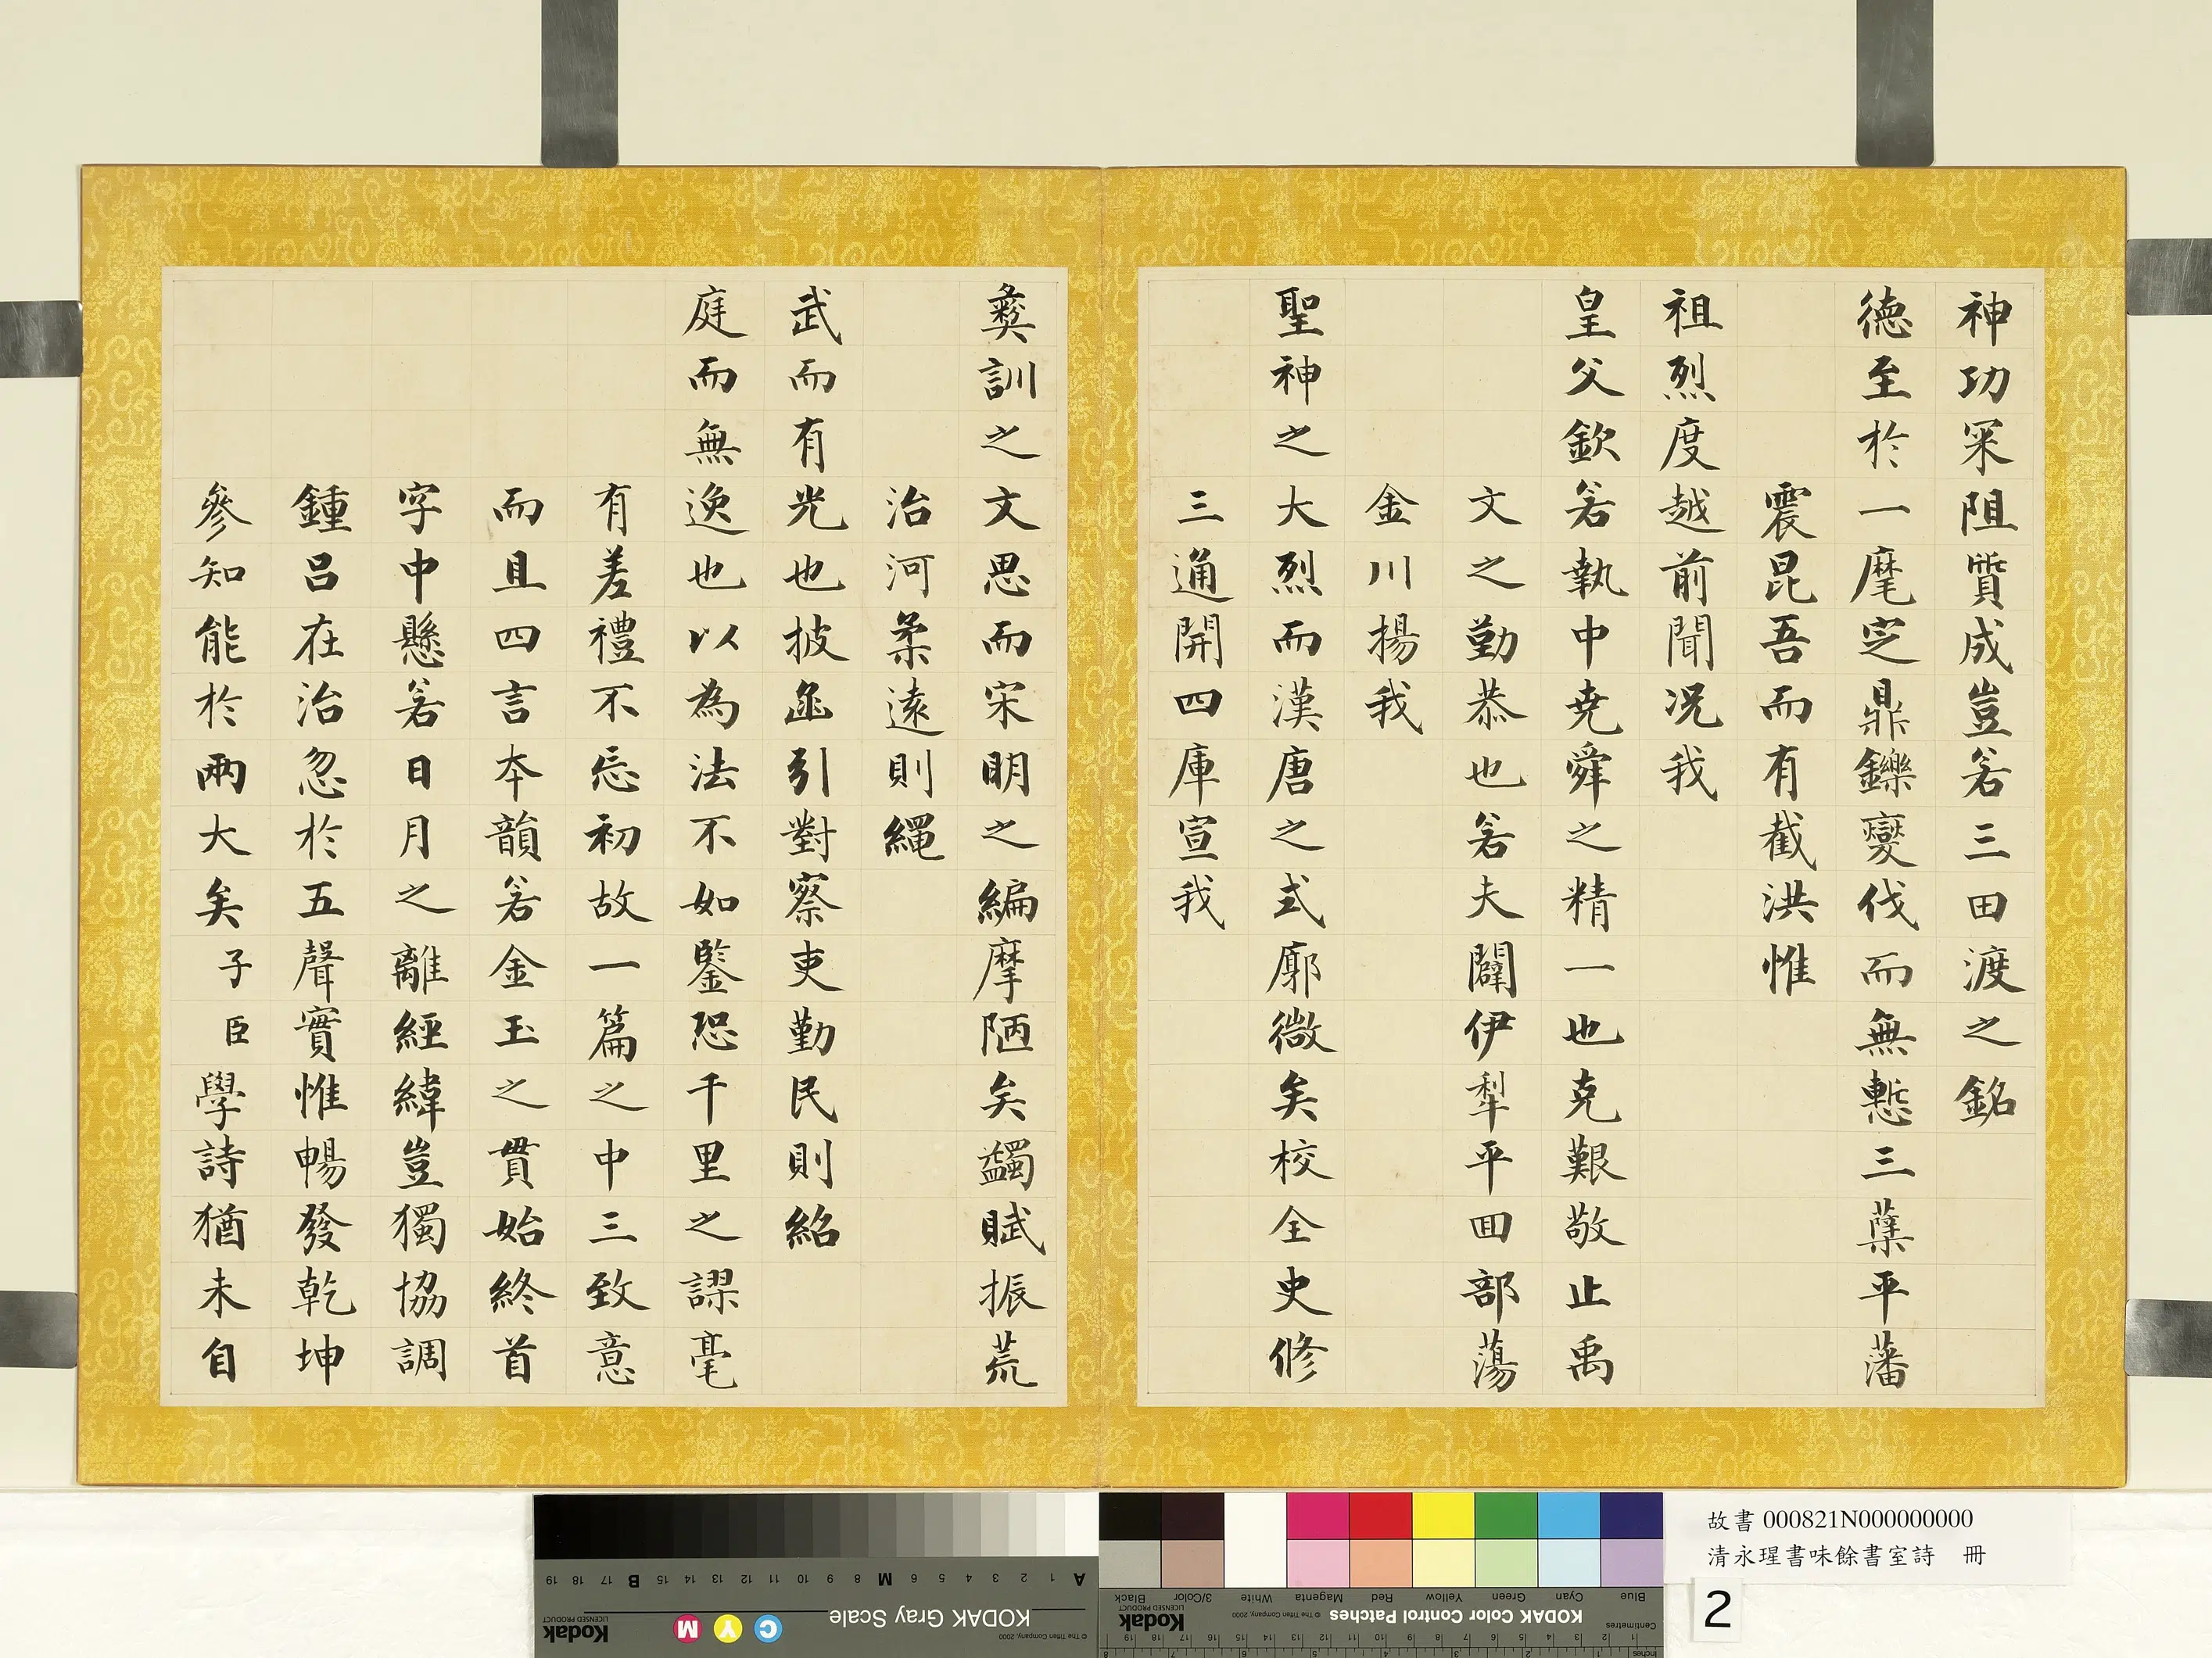 神功罙阻質成豈若三田渡之銘
德至於一麾定鼎鑠變伐而無慙三蘖平藩
震昆吾而有截洪惟
祖烈度越前聞况我
皇父欽若執中堯舜之精一也克艱敬止禹
文之勤恭也若夫闢伊犂平回部蕩
金川揚我
聖神之大烈而漢唐之式廓微矣校全史修
三通開四庫宣我
彜訓之文思而宋明之編摩陋矣蠲賦振荒
治河柔遠則繩
武而有光也披函引對察吏勤民則紹
庭而無逸也以為法不如鑒恐千里之謬毫
有差禮不忘初故一篇之中三致意
而且四言本韻若金玉之貫始終首
字中懸若日月之離經緯豈獨協調
鍾呂在治忽於五聲實惟暢發乾坤
參知能於兩大矣子臣學詩猶未自
故書 000821N000000000
清永瑆書味餘書室詩 冊
2
KODAK Gray Scale
KODAK Color Control Patches
Kodak
LICENSED PRODUCT
© The Tiffen Company, 2000
C Y M
A 1 2 3 4 5 6 M 8 9 10 11 12 13 14 15 B 17 18 19
Blue Cyan Green Yellow Red Magenta White 3/Color Black
Centimetres
Inches